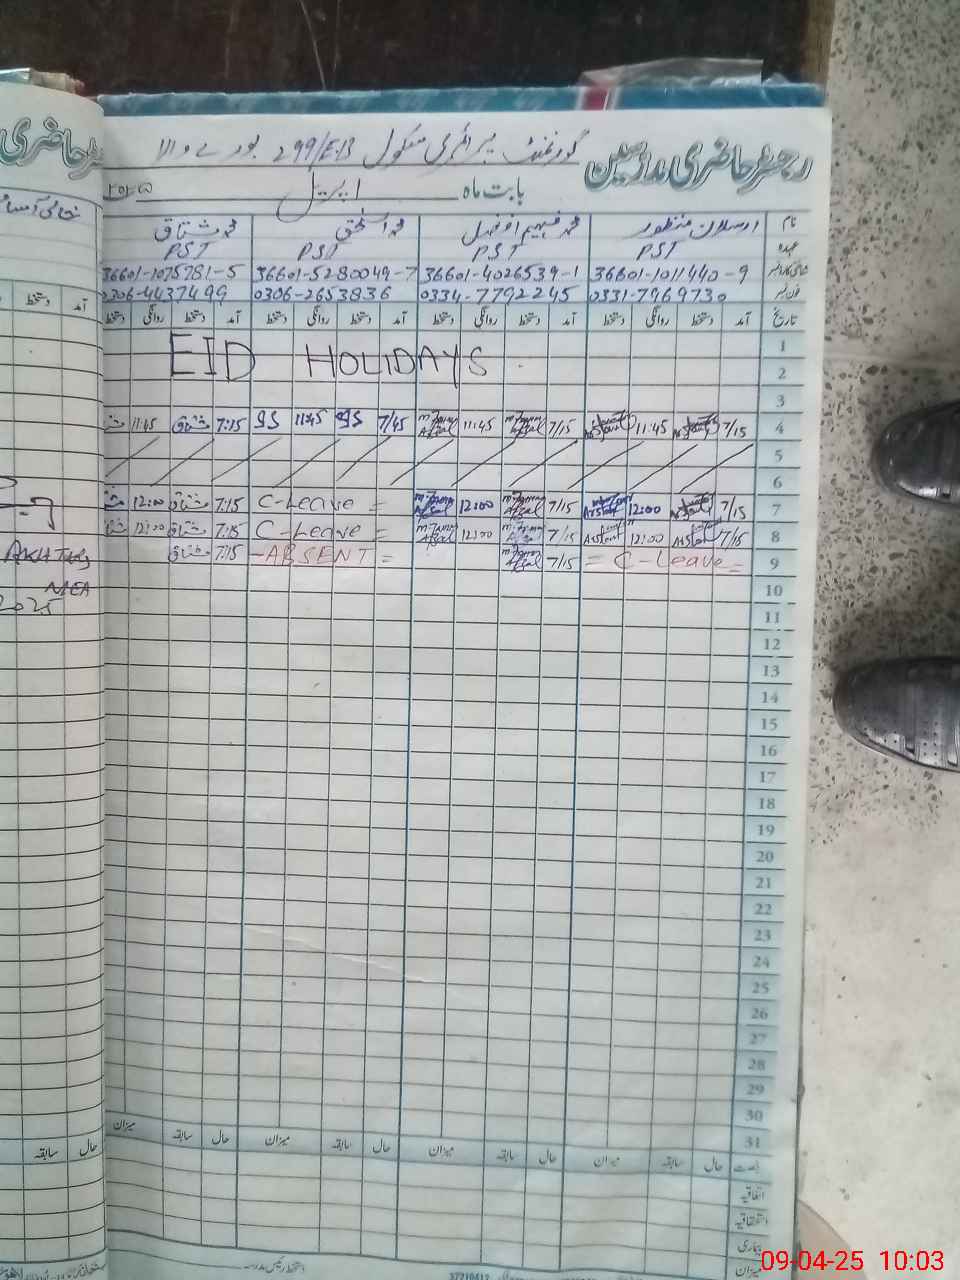 رجسٹر حاضری مدرسین گورنمنٹ پرائمری سکول 299/E.B بورے والا
بابت ماہ اپریل ۲۰۲۵
نام ارسلان منظور محمد فہیم افضل محمد اسحٰق محمد مشتاق
عہدہ PST PST PST PST
36601-1011440-9 36601-4026539-1 36601-5280049-7 36601-1075781-5
فون نمبر 0331-7969730 0334-7792245 0306-2653836 0306-4437499
تاریخ آمد دستخط روانگی دستخط آمد دستخط روانگی دستخط آمد دستخط روانگی دستخط آمد دستخط روانگی دستخط
1
2 EID HOLIDAYS
3
4 7/15 11:45 7/15 11:45 7/45 11:45 7:15 مشتاق 11:45
5
6
7 7/15 12:00 7/15 12:00 C-Leave = 7:15 مشتاق 12:00
8 7/15 12:00 7/15 12:00 C-Leave = 7:15 مشتاق 12:00
9 = C-Leave = 7/15 -ABSENT = 7:15 مشتاق
10
11
12
13
14
15
16
17
18
19
20
21
22
23
24
25
26
27
28
29
30
31
حال سابقہ میزان حال سابقہ میزان حال سابقہ میزان حال سابقہ میزان
اتفاقیہ
استحقاقیہ
بیماری
میزان
رجسٹر حاضری
آمد دستخط
AKHTAR
MEA
2025
حال سابقہ
37210412
09-04-25 10:03